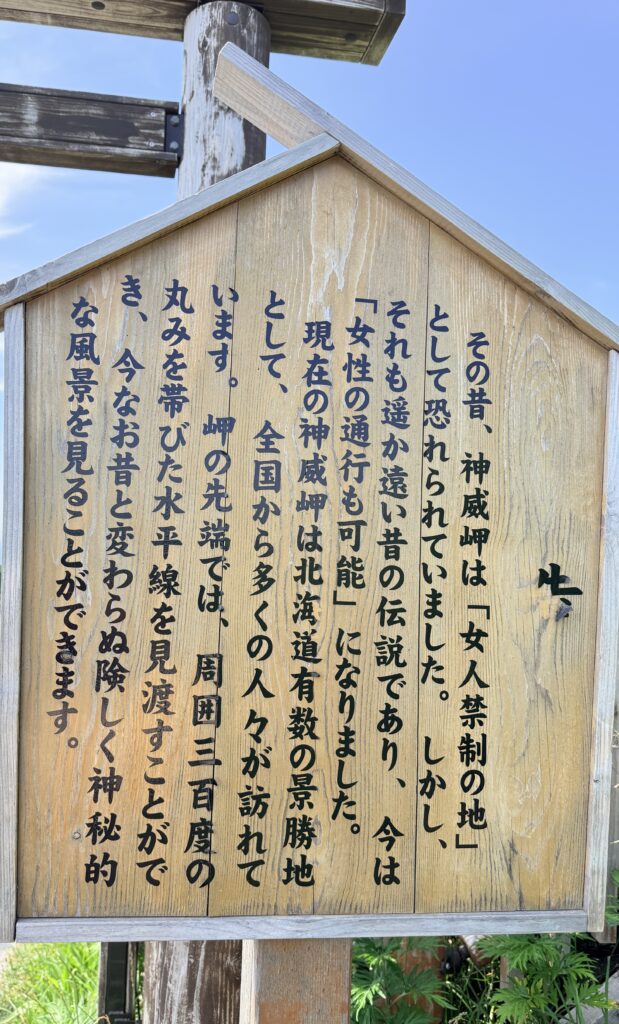 その昔、神威岬は「女人禁制の地」
として恐れられていました。しかし、
それも遥か遠い昔の伝説であり、今は
「女性の通行も可能」になりました。
現在の神威岬は北海道有数の景勝地
として、全国から多くの人々が訪れて
います。岬の先端では、周囲三百度の
丸みを帯びた水平線を見渡すことがで
き、今なお昔と変わらぬ険しく神秘的
な風景を見ることができます。